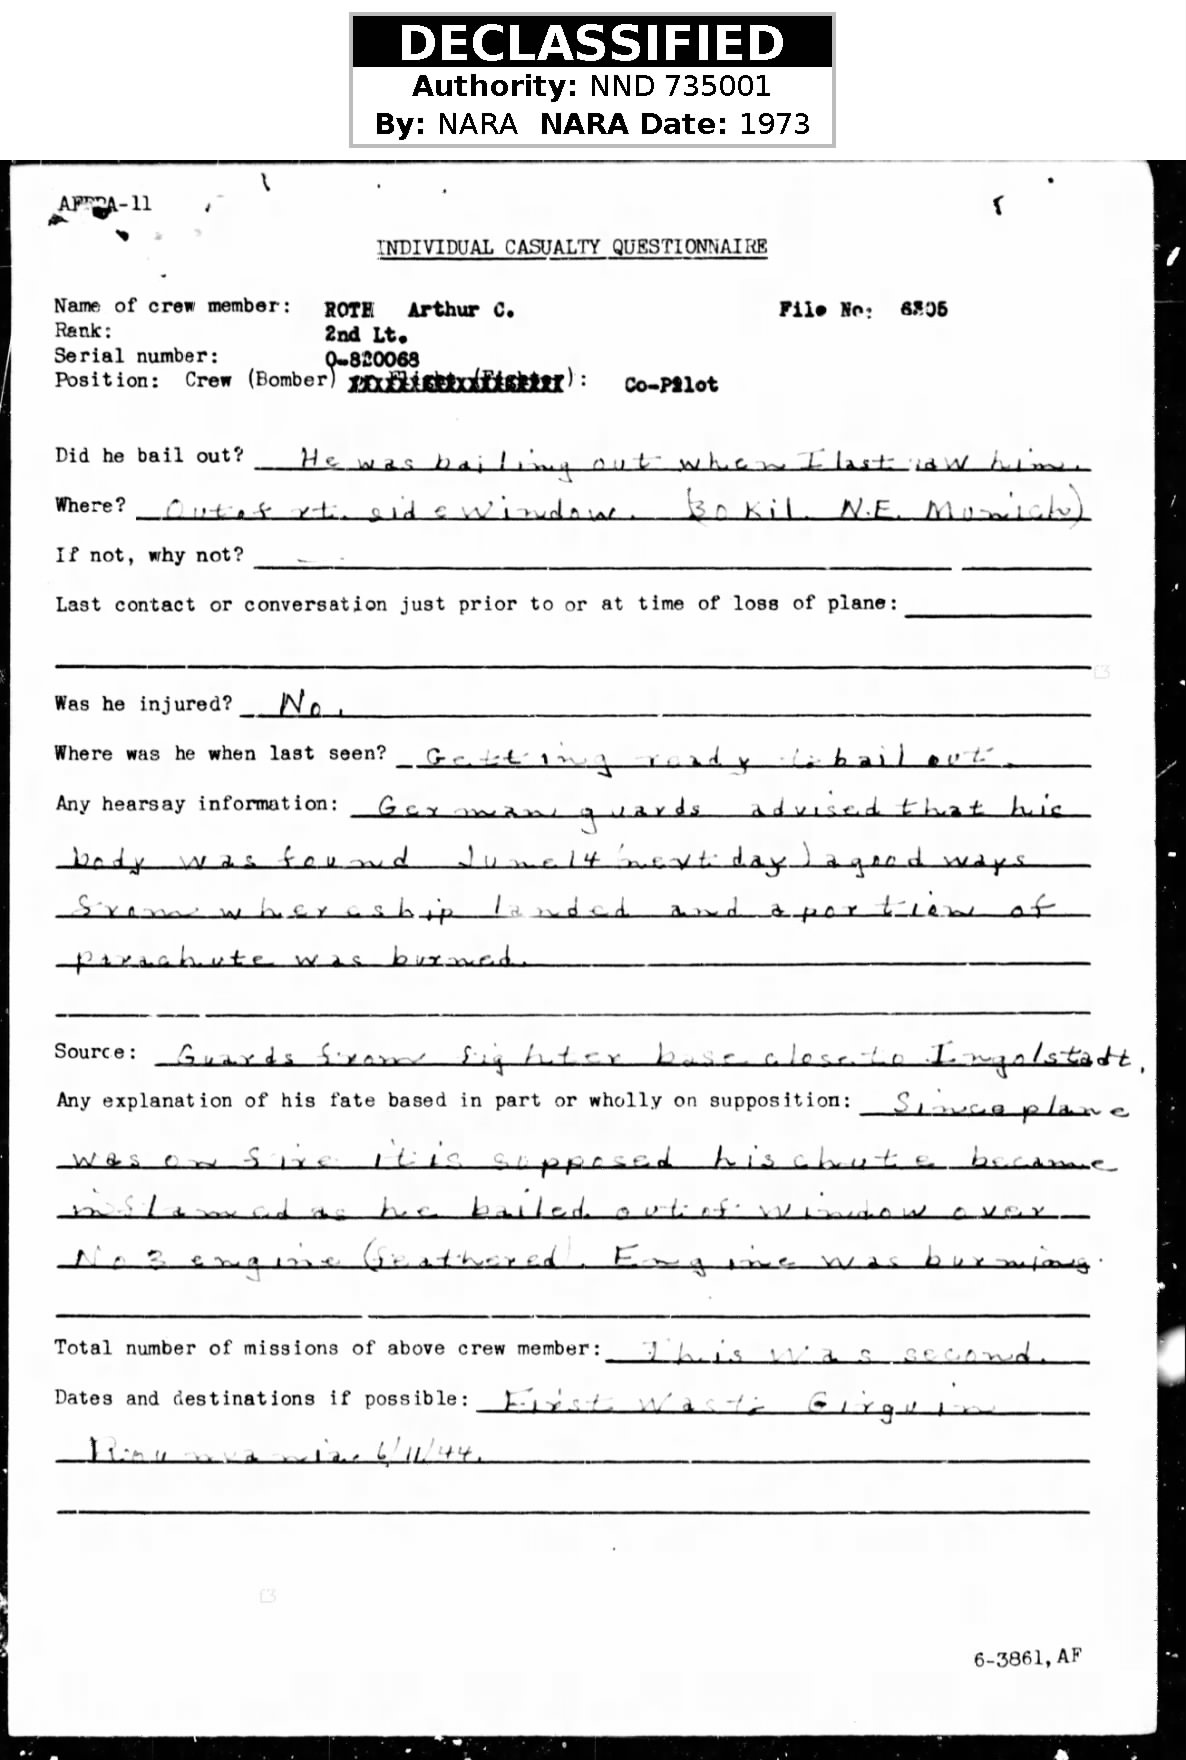 DECLASSIFIED
Authority: NND 735001
By: NARA NARA Date: 1973
AFPPA-11
INDIVIDUAL CASUALTY QUESTIONNAIRE
Name of crew member: ROTH Arthur C. File No:
Rank: 2nd Lt.
Serial number: O-820068
Position: Crew (Bomber) : Co-Pilot
Did he bail out? He was bailing out when I last saw him.
Where? Out of rt. side window. (30 Kil. N.E. Munich)
If not, why not?
Last contact or conversation just prior to or at time of loss of plane:
Was he injured? No.
Where was he when last seen? Getting ready to bail out.
Any hearsay information: German guards advised that his
body was found June 14 (next day) a good ways
from where ship landed and a portion of
parachute was burned.
Source: Guards from fighter base close to Ingolstadt.
Any explanation of his fate based in part or wholly on supposition: Since plane
was on fire it is supposed his chute became
inflamed as he bailed out of window over
No 3 engine (feathered). Engine was burning.
Total number of missions of above crew member: This was second.
Dates and destinations if possible: First was to Girgu in
6/11/44.
6-3861, AF